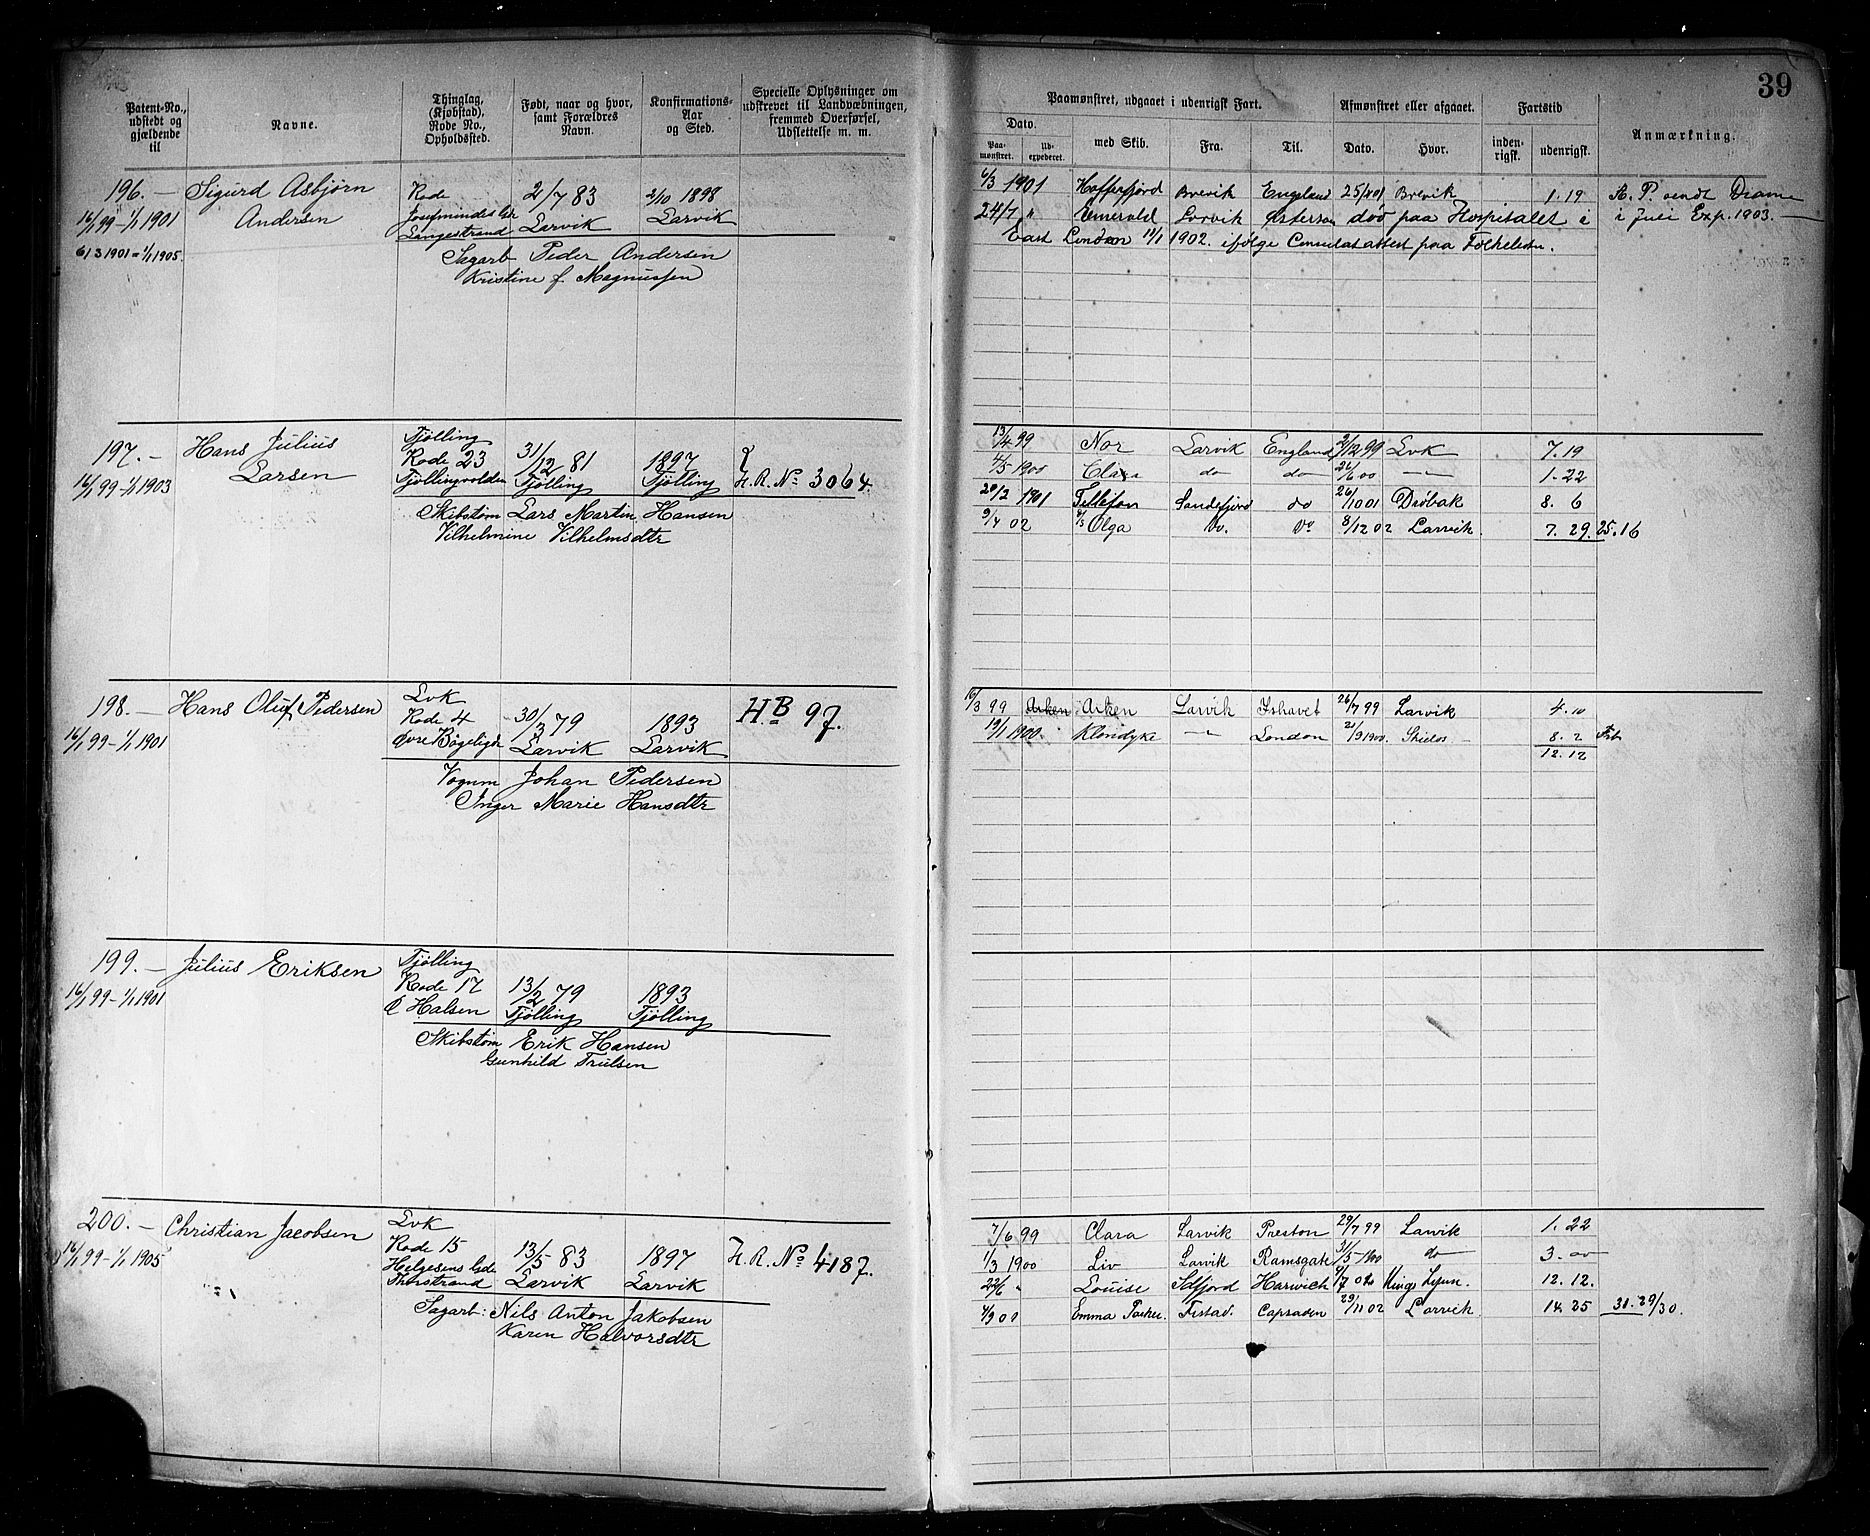 39
Patent-No., udstedt og gjældende til
Navne.
Thinglag, (Kjøbstad), Rode No., Opholdssted.
Født, naar og hvor, samt Forældres Navn.
Konfirmations-Aar og Sted.
Specielle Oplysninger om udskrevet til Landvæbningen, fremmed Overførsel, Udslettelse m. m.
Paamønstret, udgaaet i udenrigsk Fart.
Afmønstret eller afgaaet.
Fartstid
Anmærkning.
Dato.
Paa-mønstret.
Ud-expederet.
med Skib.
Fra.
Til.
Dato.
Hvor.
inden-rigsk.
udenrigsk.
196. — Sigurd Asbjørn Rode 2/7 83 2/10 1898
16/1 99 - 1/1 1901 Andersen Langestrand Larvik Larvik
6/3 1901 - 1/1 1905.
Sagarb Peder Andersen
Kristine f. Magnussen
6/3 1901 Brevik England Brevik 1.19
24/7 " Emerald Larvik død paa Hospitalet i i Juli Exp. 1903. —
East London 11/1 1902. ifølge Consulatsattest paa
197. — Hans Julius Tjølling 31/12 81 1897
16/1 99 - 1/1 1903 Larsen Rode 23 Tjøllingvolden Tjølling Tjølling H. R. No 3064.
Skibstøm Lars Martin Hansen
Vilhelmine Vilhelmsdtr
13/4 99 Nor Larvik England 2/12 99 Lvk 7. 19
4/5 1900 Clara do do 26/6 00 — " — 1. 22
20/2 1901 Sandefjord do 26/10 01 Drøbak 8. 6
9/4 02 Olga Do. Do 8/12 02 Larvik 7. 29. 25. 16
198. — Hans Oluf Pedersen Lvk
16/1 99 - 1/1 1901 Rode 4 30/3 79 1893 H.B 97.
Øvre Bøgeligdr Larvik Larvik
Vognm Johan Pedersen
Inger Marie Hansdtr
16/3 99 Arken Arken Larvik Ishavet 26/7 99 Larvik 4. 10
19/1 1900. Klondyke — " — London 21/9 1900. Shields — 8. 2
12. 12
199. — Julius Eriksen Tjølling
16/1 99 - 1/1 1901 Rode 17 13/2 79 1893
Halsen Tjølling Tjølling
Skibstøm Erik Hansen
Gunhild Trulsen
200. — Christian Jacobsen Lvk
16/1 99 - 1/1 1905 Rode 15 13/5 83 1897 H. R. No 4187.
Helgesens Gde
Thorstrand Larvik Larvik
Sagarb: Nils Anton Jakobsen
Karen Halvorsdtr
7/6 99 Clara Larvik Preston 29/7 99 Larvik 1. 22
1/3 1900 Liv Larvik Ramsgate 31/5 - 1900 do 3.
22/6 " Louise Harwich Kings Lynn. 12. 12.
Emma Parker. 29/11 02 Larvik 14. 25 31. 29/30.